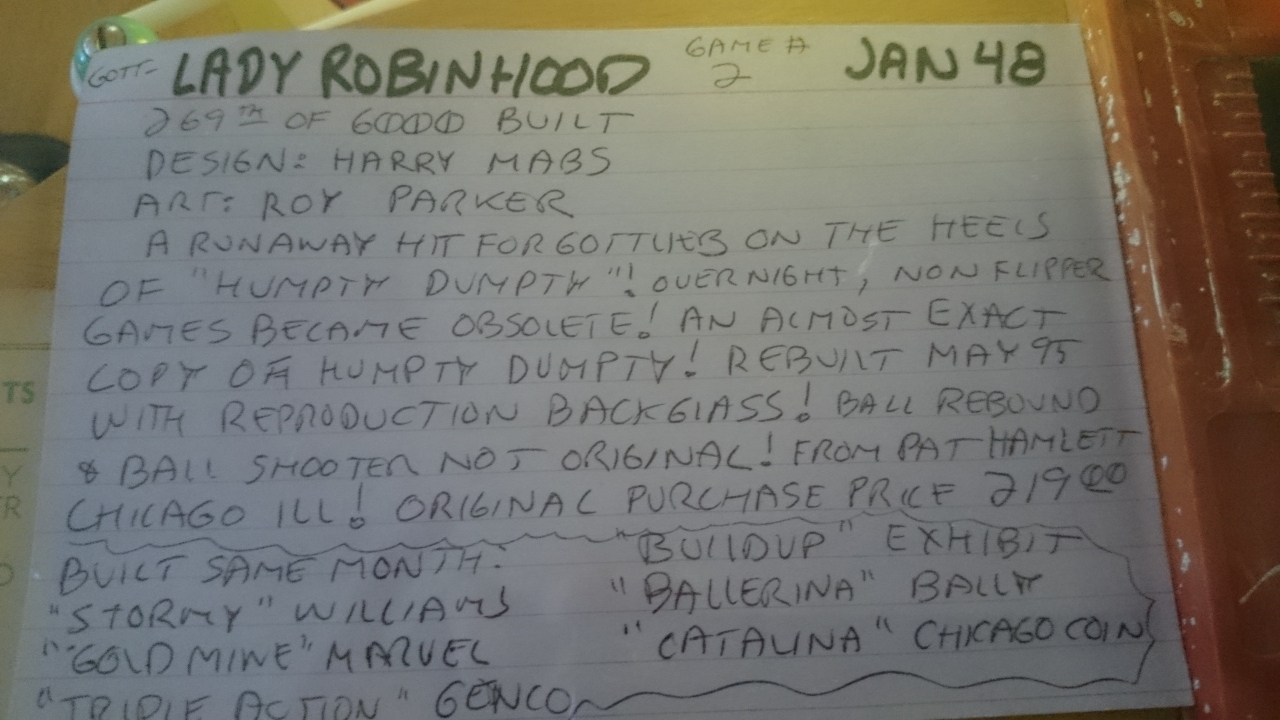 GOTT- LADY ROBINHOOD GAME # 2 JAN 48
269TH OF 6000 BUILT
DESIGN: HARRY MABS
ART: ROY PARKER
A RUNAWAY HIT FOR GOTTLIEB ON THE HEELS
OF "HUMPTY DUMPTY"! OVERNIGHT, NON FLIPPER
GAMES BECAME OBSOLETE! AN ALMOST EXACT
COPY OF HUMPTY DUMPTY! REBUILT MAY 95
WITH REPRODUCTION BACKGLASS! BALL REBOUND
& BALL SHOOTER NOT ORIGINAL! FROM PAT HAMLETT
CHICAGO ILL! ORIGINAL PURCHASE PRICE 219 00
BUILT SAME MONTH: "BUILDUP" EXHIBIT
"STORMY" WILLIAMS "BALLERINA" BALLY
"GOLD MINE" MARVEL "CATALINA" CHICAGO COIN
"TRIPLE ACTION" GENCO
TS
Y
R